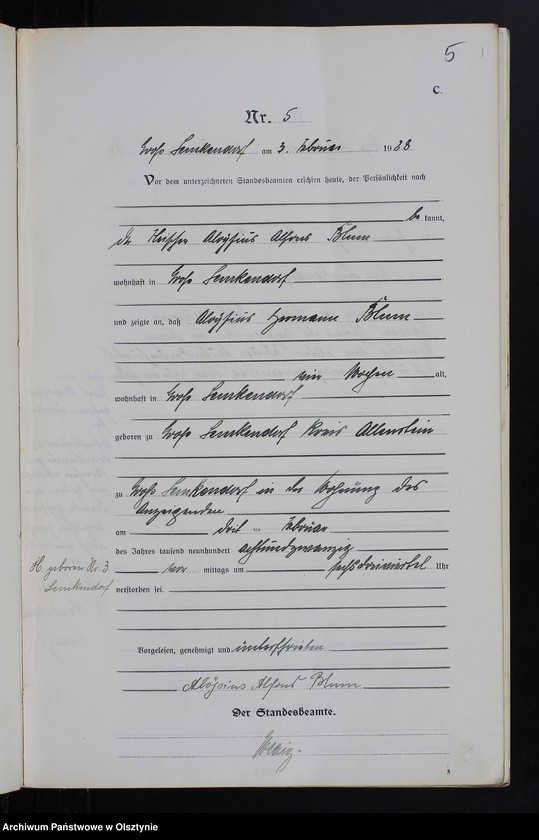 5
C.
Nr. 5
Groß Lemkendorf am 3. Februar 1928
Vor dem unterzeichneten Standesbeamten erschien heute, der Persönlichkeit nach
be kannt,
der Aloysius Alfons Blum
wohnhaft in Groß Lemkendorf
und zeigte an, daß Aloysius Hermann Blum
vier Wochen alt,
wohnhaft in Groß Lemkendorf
geboren zu Groß Lemkendorf Kreis Allenstein
zu Groß Lemkendorf in der Wohnung des
Anzeigenden
am drei ten Februar
des Jahres tausend neunhundert achtundzwanzig
vor mittags um sechsdreiviertel Uhr
verstorben sei.
H. geboren Nr. 3
Lemkendorf
Vorgelesen, genehmigt und unterschrieben
Aloysius Alfons Blum
Der Standesbeamte.
5
Archiwum Państwowe w Olsztynie